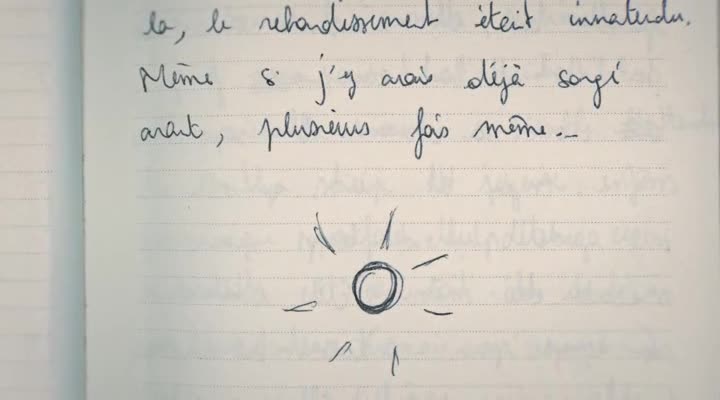 là, le rebondissement était innatendu.
Même si j'y avais déjà songé
avant, plusieurs fois même...